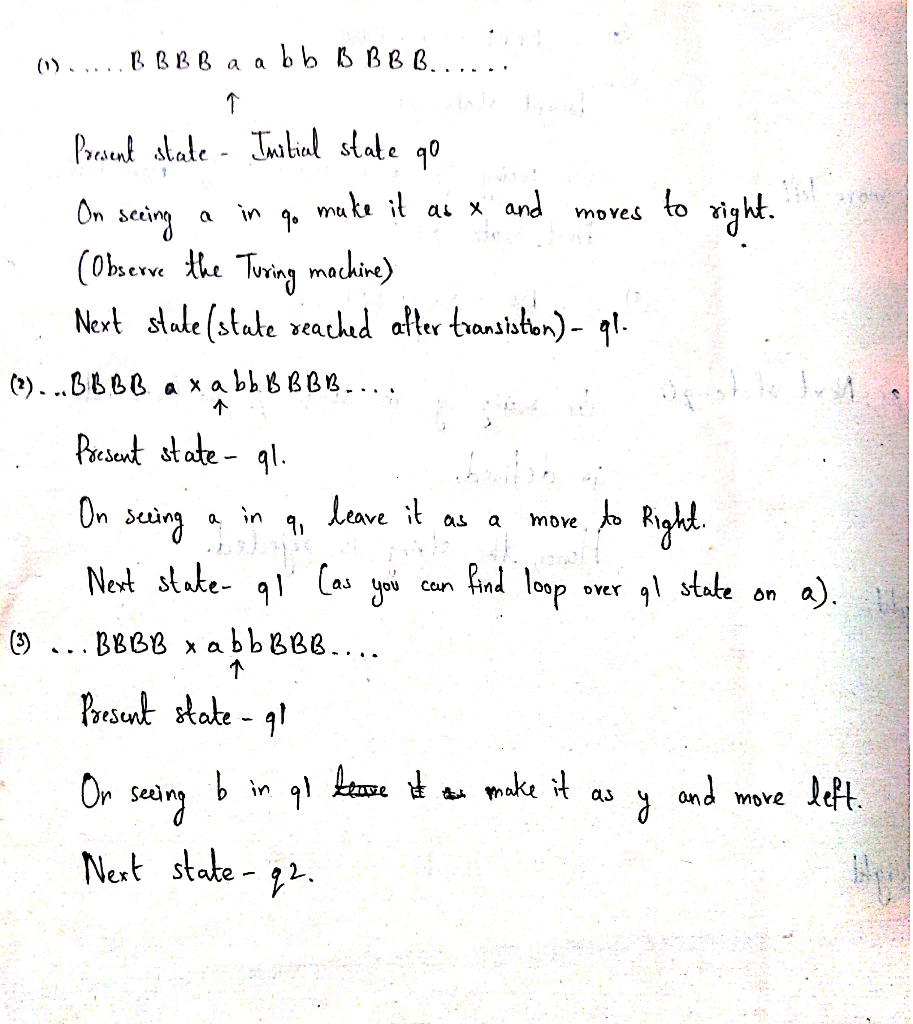 (1) ..... B B B B a a b b B B B B......
↑
Present state - Initial state q0
On seeing a in q0 make it as x and moves to right.
(Observe the Turing machine)
Next state (state reached after transistion) - q1.
(2)...BBBB a x a b b B B B B....
↑
Present state - q1.
On seeing a in q1 leave it as a move to Right.
Next state- q1 (as you can find loop over q1 state on a).
(3) ...BBBB x a b b BBB....
↑
Present state - q1
On seeing b in q1 leave it as make it as y and move left.
Next state - q2.